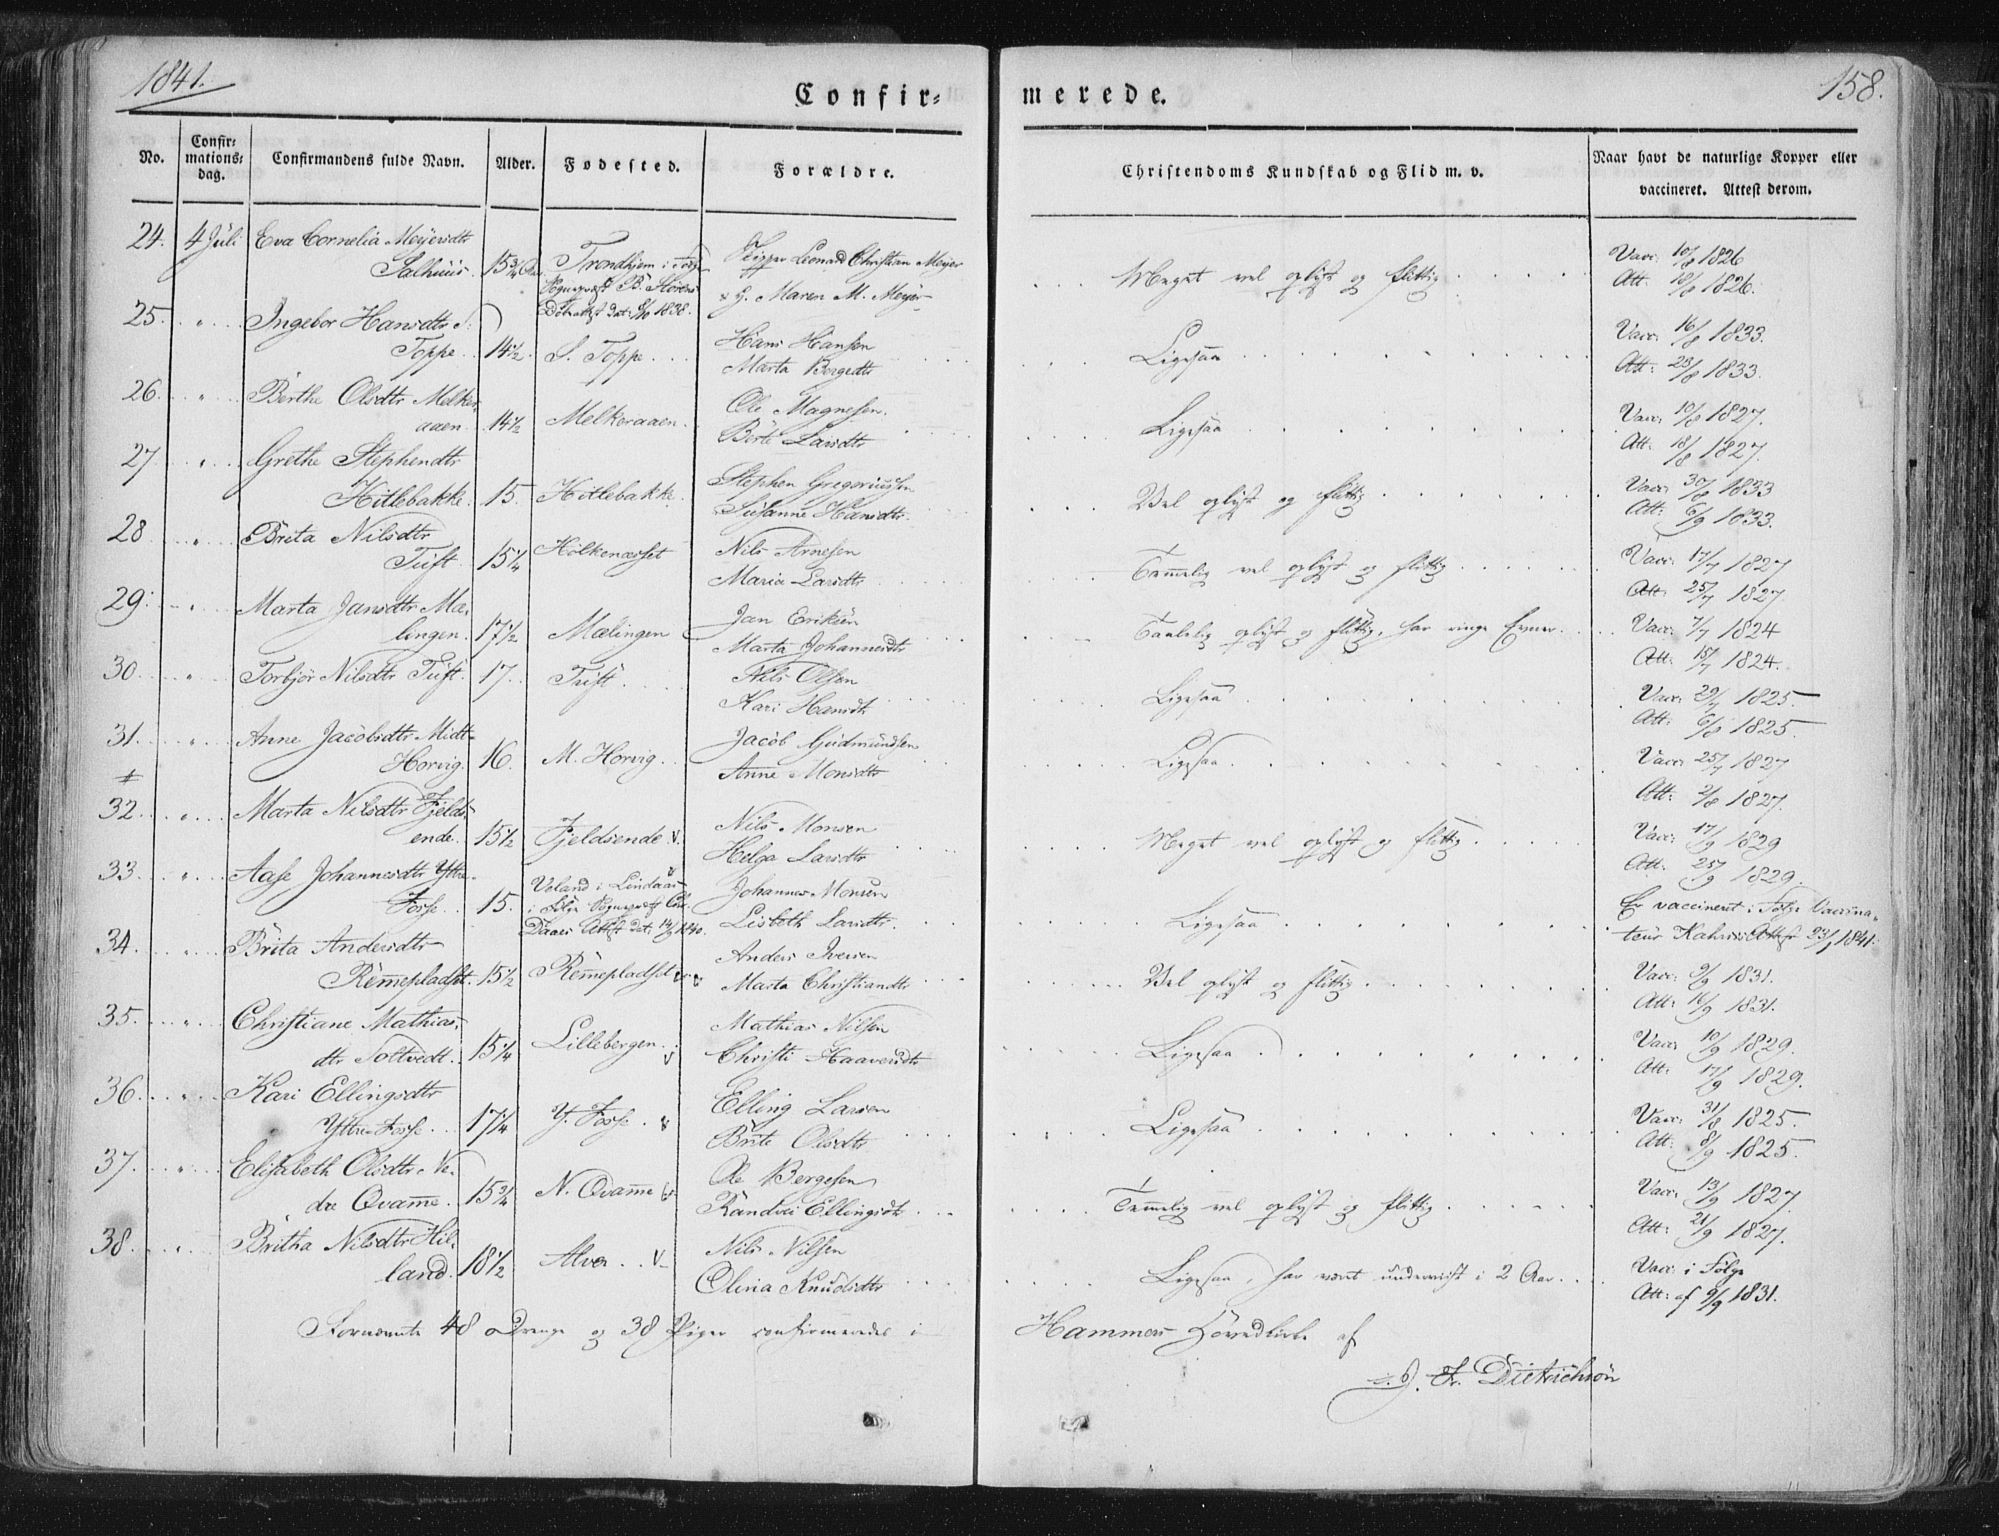 1841.
Confir=
merede.
158.
No.
Confir=
mations=
dag.
Confirmandens fulde Navn.
Alder.
Fødested.
Forældre.
Christendoms Kundskab og Flid m. v.
Naar havt de naturlige Kopper eller
vaccineret. Attest derom.
24. 4 Juli Eva Cornelia Meyersdtr
Salhuus. 15 3/4 Trondhjem i Følge Skipper Leonard Christian Meyer
Sognepræst B.
& H. Maren M. Meyer
Døbeattest dat: 1838.
Meget vel oplyst og flittig
Vacc: 10/8 1826
Att. 18/8 1826.
25. " Ingebor Hansdtr S:
Toppe. 14 1/2. S. Toppe. Hans Hansen
Marta Bergedtr
Ligesaa
Vacc: 16/8 1833.
Att: 23/8 1833.
26. " Berthe Olsdtr Melker
aaen. 14 1/2 Melkeraaen. Ole Magnesen.
Berte Larsdtr
Ligesaa
Vacc: 10/8 1827.
Att: 18/8 1827.
27 " Grethe Stephendtr
Hitlebakke. 15. Hitlebakke. Stephen Gregoriussen
Susanne Hansdtr.
Vel oplyst og flittig
Vacc: 30/8 1833
Att: 6/9 1833.
28 " Brita Nilsdtr
Tuft. 15 1/4 Holkenæsset Nils Arnesen
Maria Larsdtr
Temmelig vel oplyst og flittig
Vacc: 17/7 1827
Att: 25/7 1827
29. " Marta Jansdtr Mæ-
lingen. 17 1/2 Mælingen Jan Eriksen
Marta Johannesdtr
Taalelig oplyst og flittig, har ringe Evner.
Vacc: 7/7 1824
Att: 15/7 1824.
30 " Torbjør Nilsdtr Tuft. 17. Tuft. Nils Olsen
Kari Hansdtr
Ligesaa
Vacc: 29/7 1825.
Att: 6/8 1825.
31. " Anne Jacobsdtr Midt-
Horvig. 16. M. Horvig. Jacob Gudmundsen
Anne Monsdtr
Ligesaa.
Vacc: 25/7 1827
Att: 2/8 1827.
#
32. " Marta Nilsdtr Fjelds-
ende. 15 1/2 Fjeldsende v. Nils Monsen
Helga Larsdtr
Meget vel oplyst og flittig
Vacc: 17/9 1829
Att: 25/9 1829.
33. " Aase Johannesdtr Yttre
Fosse. 15. Veland i Lindaas Johannes Monsen
i Følge Sognepræst
Daaes Attest dat: 1840. Lisbeth Larsdtr.
Ligesaa
Er vaccineret i Følge Vaccina-
teur Kahrs Attest 23/1 1841.
34. " Brita Andersdtr
Remmepladset. 15 1/2 Remmepladset v Anders Iversen
Marta Christiandtr
Vel oplyst og flittig.
Vacc: 9/9 1831.
Att: 16/9 1831.
35. " Christiane Mathias-
dtr Soltvedt. 15 1/4 Lillebergen. v Mathias Nilsen
Christi Haaversdtr
Ligesaa
Vacc: 10/9 1829.
Att: 17/9 1829.
36. " Kari Ellingsdtr
Yttre Fosse. 17 1/4 Y. Fosse. v Elling Larsen
Brite Olsdtr
Ligesaa
Vacc: 31/8 1825.
Att: 8/9 1825.
37. " Elisabeth Olsdtr Ne-
dre Qvamme. 15 3/4 N. Qvamme v Ole Bergesen
Randvei Ellingsdtr
Temmelig vel oplyst og flittig
Vacc: 13/9 1827.
Att: 21/9 1827.
38. " Britha Nilsdtr Hil-
land. 18 1/2 Alver. v. Nils Nilsen
Olena Knudsdtr
Ligesaa, har været underviist i 2 Aar.
Vacc: i Følge
Att: af 9/9 1831.
Fornævnte 48 Drenge og 38 Piger confirmeredes i Hammers Hovedkirke af
Fr. Dietrichson